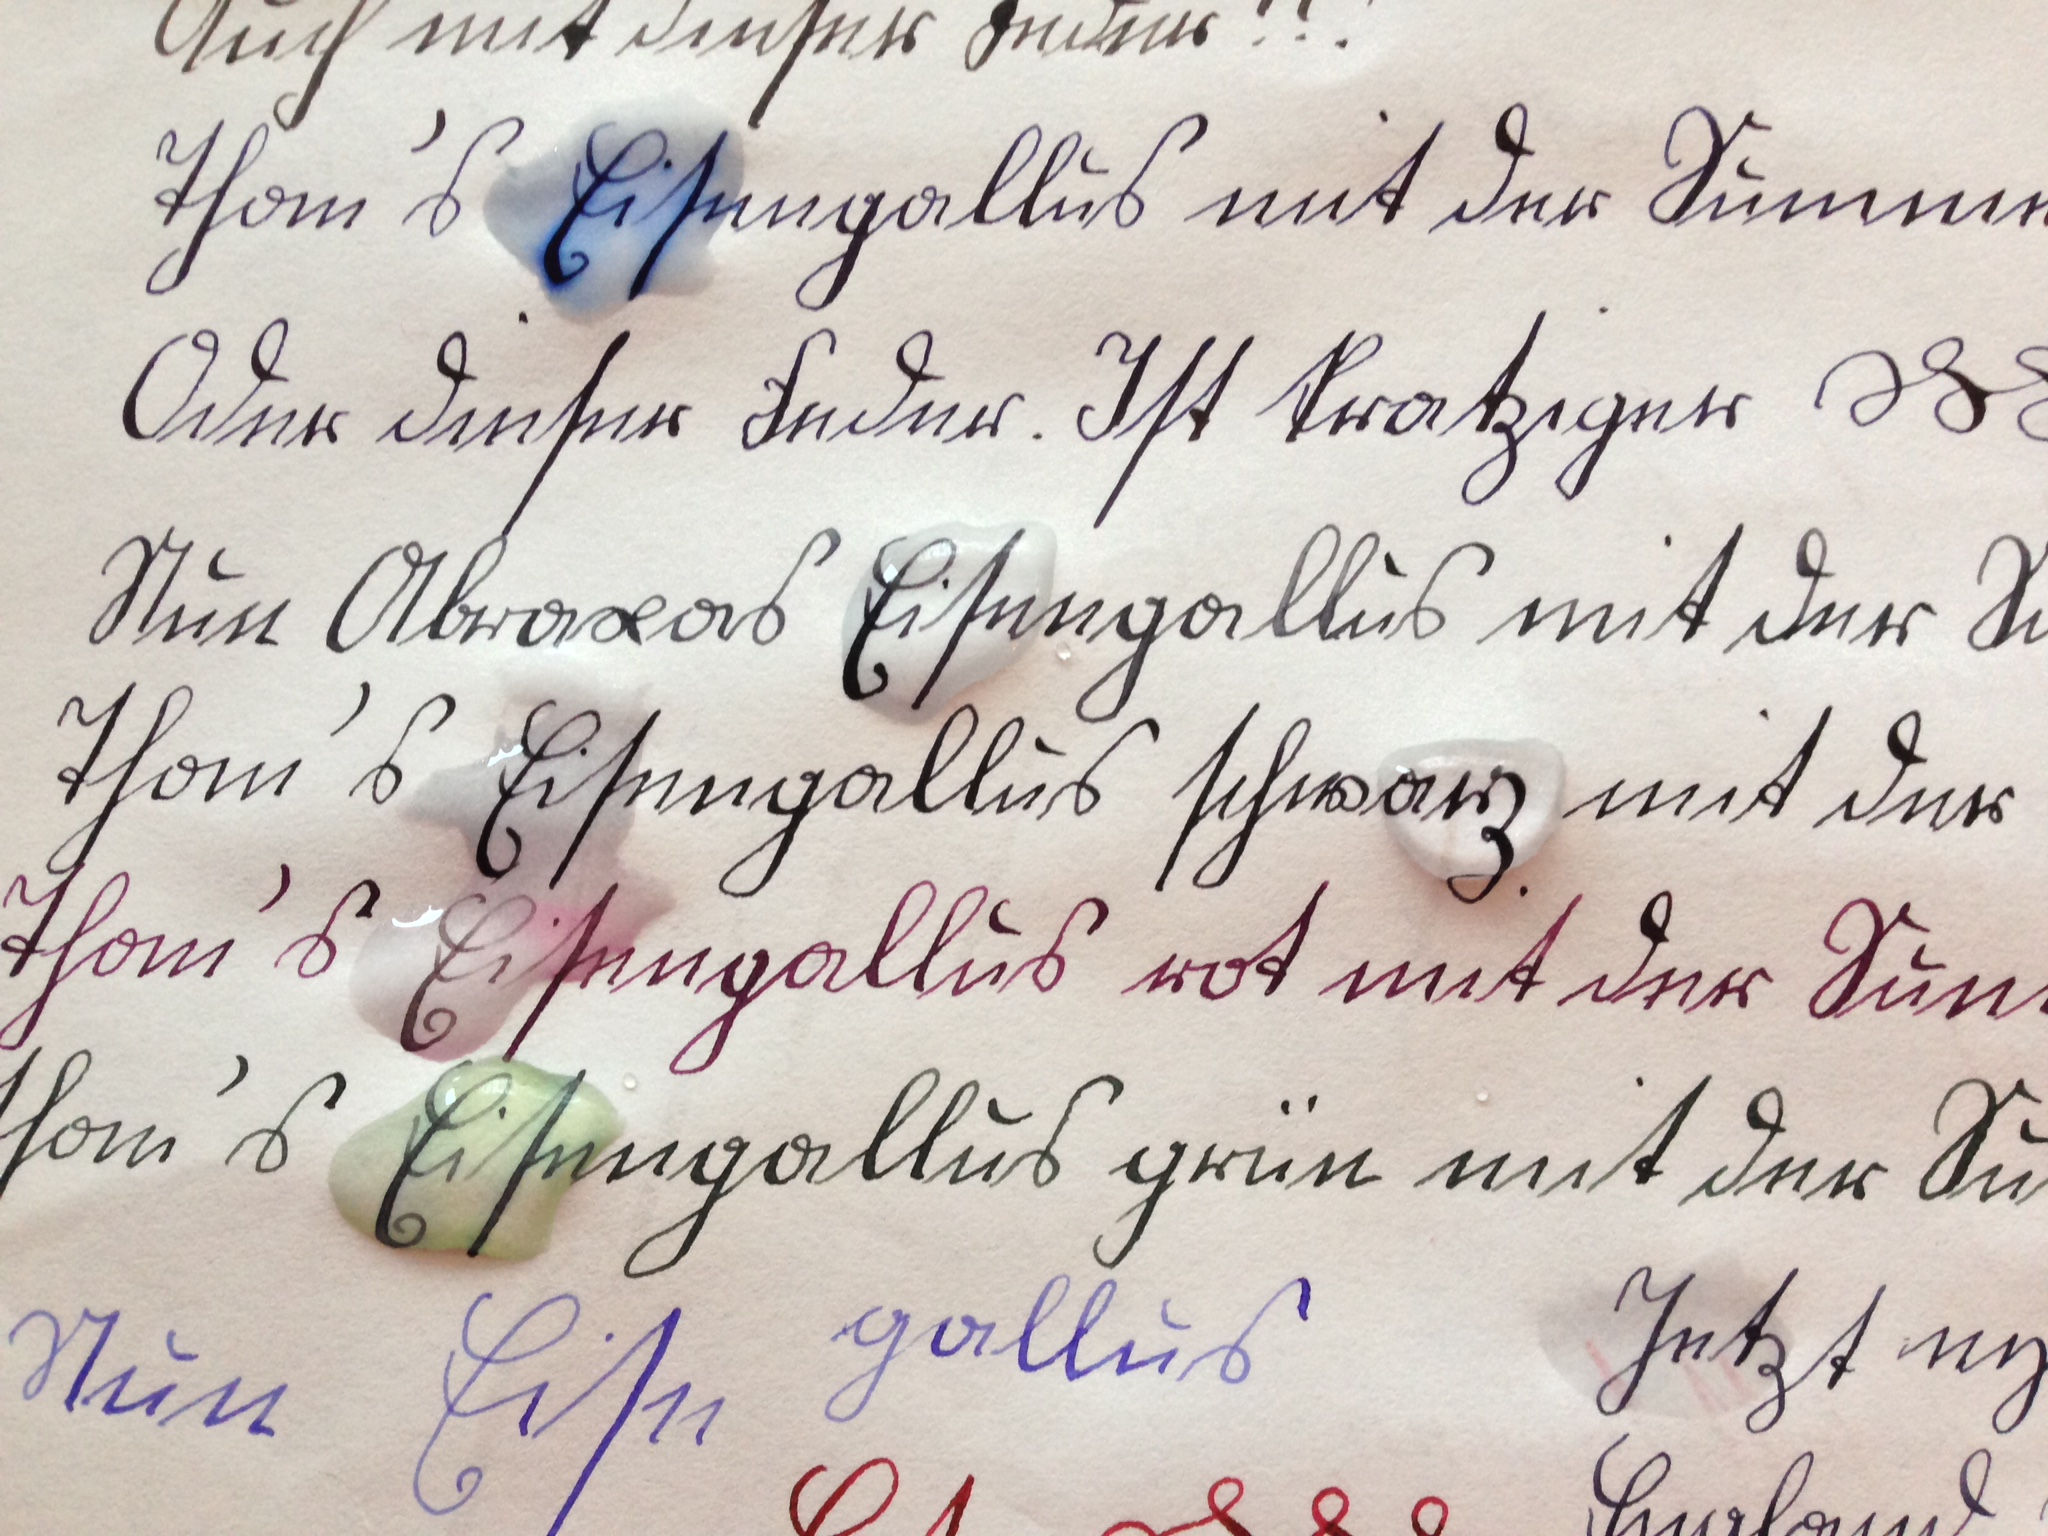 Auch mit dieser Feder!!!
Thom's Eisengallus mit der Summe
Oder dieser Feder. Ist kratziger
Nun Abraxas Eisengallus mit der Su
Thom's Eisengallus schwarz mit der
Thom's Eisengallus rot mit der Sum
Thom's Eisengallus grün mit der Su
Nun Eisn gallus Jetzt
England